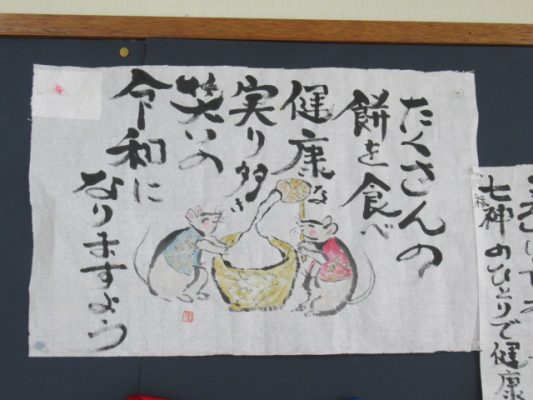 たくさんの
餅を食べ
健康な
実り多き
笑いの
令和に
なりますよう
七神のひとりで健康